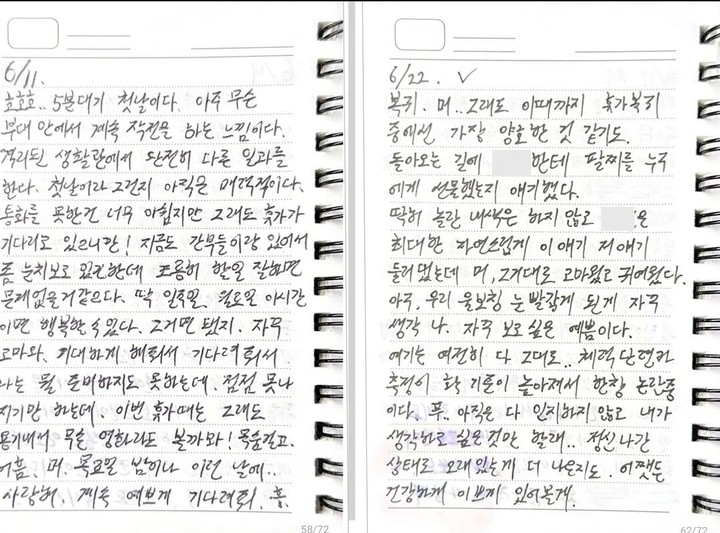 6/11.
호호호.. 5분대기 첫날이다. 아주 무슨
부대 안에서 계속 작전을 하는 느낌이다.
격리된 생활관에서 완전히 다른 일과를
한다. 첫날이라 그런지 아직은 매력적이다.
통화를 못한건 너무 아쉽지만 그래도 휴가가
기다리고 있으니깐! 지금도 간부들이랑 있어서
좀 눈치보고 있긴한데 조용히 할일 잘하면
문제없을거같다. 딱 일주일. 월요일 이시간
이면 행복할 수 있다. 그거면 됐지. 자꾸
고마워. 기대하게 해줘서 기다려줘서
나는 뭘 준비하지도 못하는데. 점점 못나
지기만 하는데. 이번 휴가때는 그래도
용기내서 무슨 영화라도 볼까봐! 목숨걸고.
어흠. 머. 목요일 밤이나 이런 날에..
사랑해. 계속 예쁘게 기다려줘. 흠.
58/72
6/22. ✓
복귀. 머.. 그래도 이때까지 휴가복귀
중에선 가장 양호한 것 같기도.
돌아오는 길에 한테 팔찌를 누구
에게 선물했는지 얘기했다.
딱히 놀란 내색은 하지 않고 은
최대한 자연스럽게 이 얘기 저 얘기
둘러댔는데 머, 그거대로 고마웠고 귀여웠다.
아구, 우리 울보칭 눈 빨갛게 된게 자꾸
생각 나. 자꾸 보고싶은 예쁨이다.
여기는 여전히 다 그대로.. 체력단련과
측정이 확 기준이 높아져서 한창 논란중
이다. 푸.. 아직은 다 인지하지 않고 내가
생각하고 싶은 것만 할래.. 정신나간
상태로 오래있는게 더 나은지도. 어쨌든
건강하게 이쁘게 있어볼게.
62/72